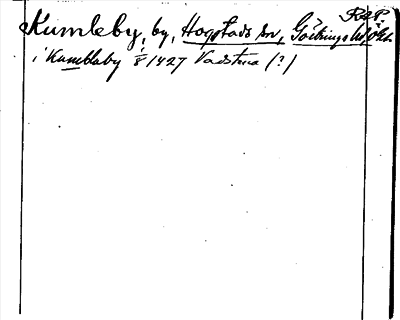 RAP.
Kumleby, by, Hogstads sn, Göstrings hd, Ög.
i Kumblaby 1/8 1427 Vadstena (?)